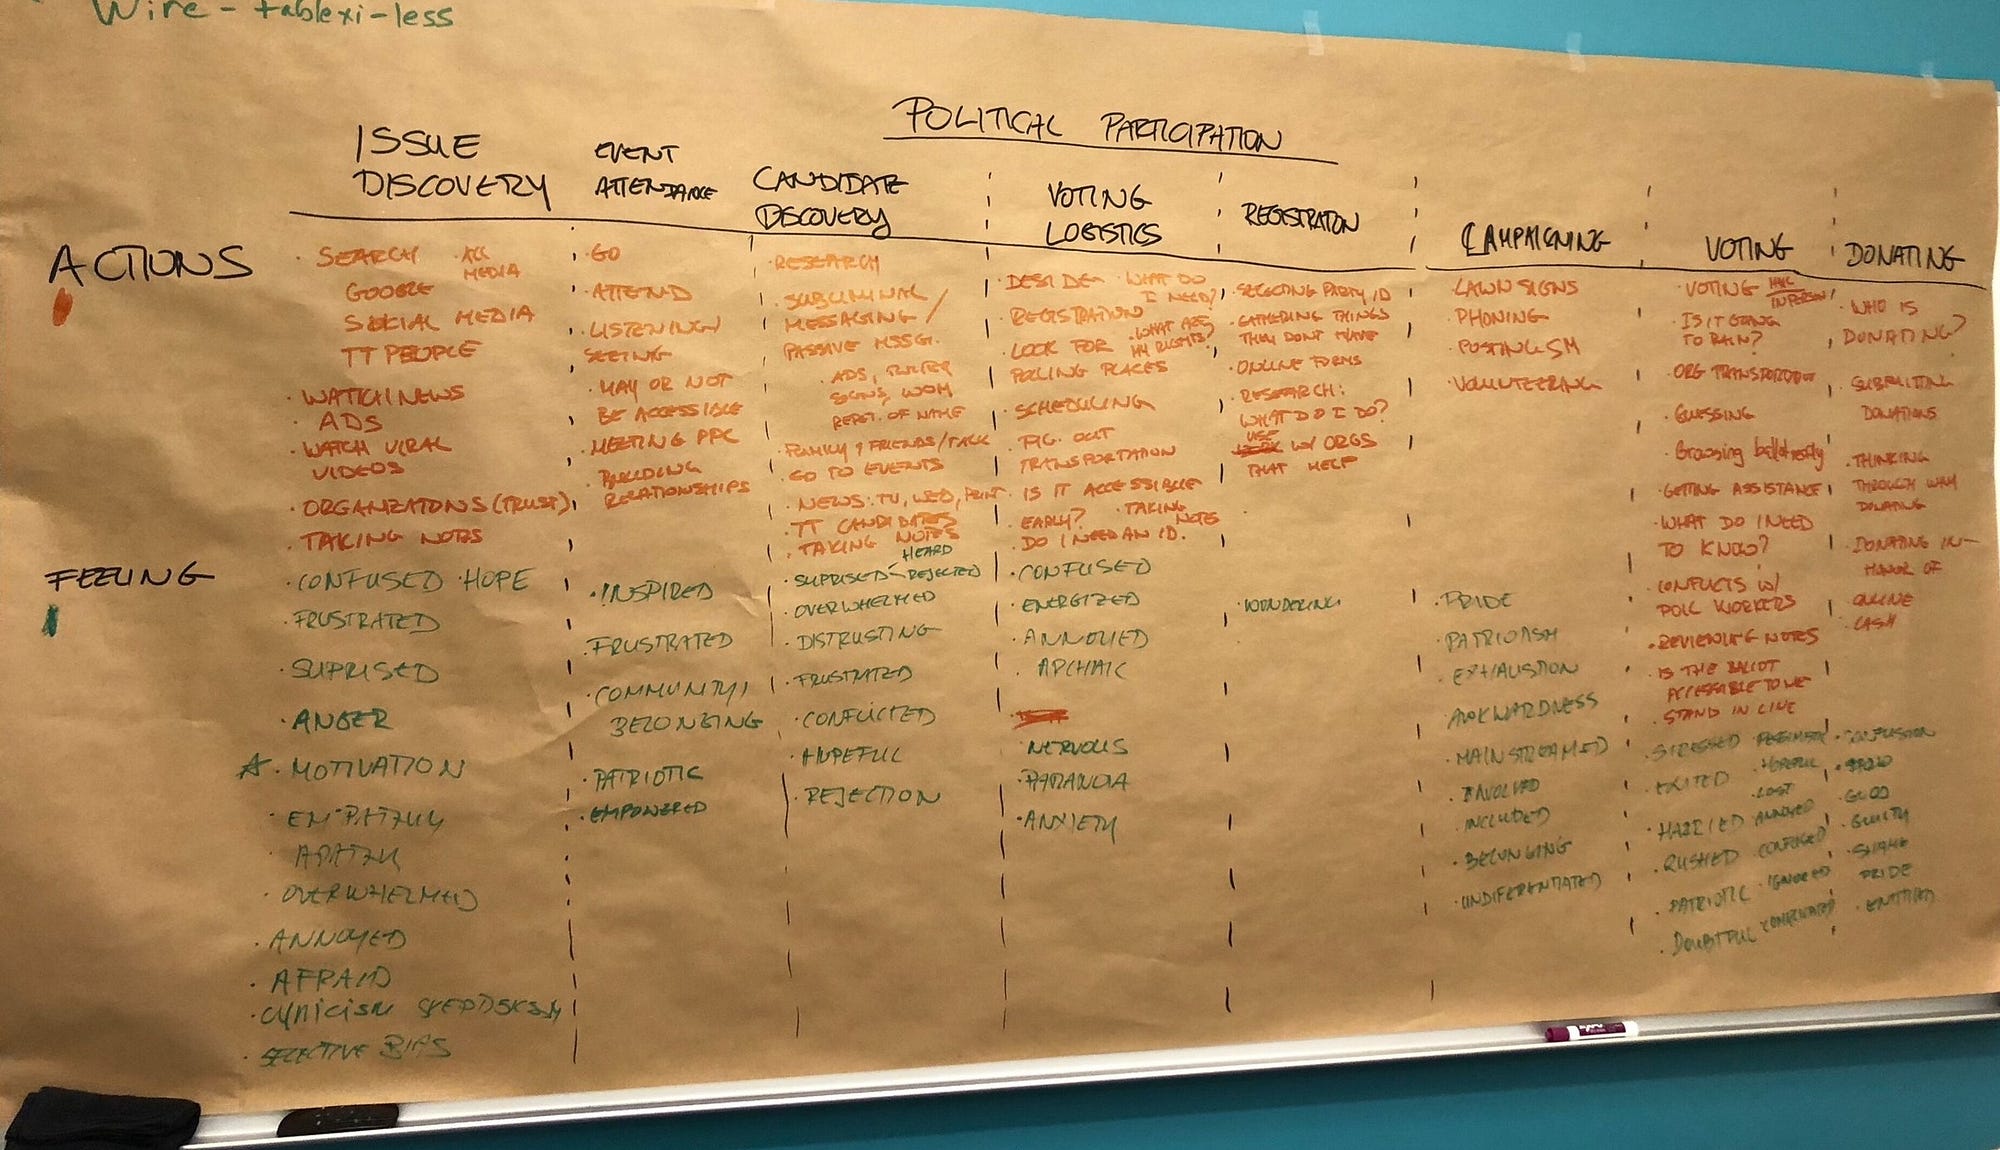 Wire - tablexi-less
POLITICAL PARTICIPATION
ISSUE
DISCOVERY
EVENT
ATTENDANCE
CANDIDATE
DISCOVERY
VOTING
LOGISTICS
REGISTRATION
CAMPAIGNING
VOTING
DONATING
ACTIONS
· SEARCH
· ALL
MEDIA
GOOGLE
SOCIAL MEDIA
TT PEOPLE
· WATCH NEWS
· ADS
· WATCH VIRAL
VIDEOS
· ORGANIZATIONS (TRUST)
· TAKING NOTES
· GO
· ATTEND
· LISTENING/
SEEING
· MAY OR NOT
BE ACCESSIBLE
· MEETING PPL
· BUILDING
RELATIONSHIPS
· RESEARCH
· SUBLIMINAL
MESSAGING /
PASSIVE MSSG.
· ADS,
SIGNS, WOM
REPET. OF NAME
· FAMILY & FRIENDS/TALK
· GO TO EVENTS
· NEWS: TV, WEB, PRINT
· TT CANDIDATES
· TAKING NOTES
· DESIDE
· WHAT DO
I NEED?
· REGISTRATION
· WHAT ARE
MY RIGHTS?
· LOOK FOR
POLLING PLACES
· SCHEDULING
· FIG. OUT
TRANSPORTATION
· IS IT ACCESSIBLE
· EARLY?
· TAKING
NOTES
· DO I NEED AN ID.
· SELECTING PARTY ID
· GATHERING THINGS
THEY DON'T HAVE
· ONLINE FORMS
· RESEARCH:
WHAT DO I DO?
USE
W/ ORGS
THAT HELP
LAWN SIGNS
· PHONING
· POSTING SM
· VOLUNTEERING
· VOTING
IN PERSON
· IS IT GOING
TO RAIN?
· ORG TRANSPORTATION
· GUESSING
· GETTING ASSISTANCE
· WHAT DO I NEED
TO KNOW?
· CONFLICTS W/
POLL WORKERS
· REVIEWING NOTES
· IS THE BALLOT
ACCESSABLE TO ME
· STAND IN LINE
· WHO IS
DONATING?
· SUBMITTING
DONATIONS
· THINKING
THROUGH WHY
DONATING
· DONATING IN-
HONOR OF
· ONLINE
· CASH
FEELING
· CONFUSED
· HOPE
· FRUSTRATED
· SUPRISED
· ANGER
· MOTIVATION
· EMPATHY
· APATHY
· OVERWHELMED
· ANNOYED
· AFRAID
· CYNICISM SKEPTISISM
· SELECTIVE BIAS
· INSPIRED
· FRUSTRATED
· COMMUNITY/
BELONGING
· PATRIOTIC
· EMPOWERED
HEARD
· SUPRISED
REJECTED
· OVERWHELMED
· DISTRUSTING
· FRUSTRATED
· CONFLICTED
· HOPEFUL
· REJECTION
· CONFUSED
· ENERGIZED
· ANNOYED
· ARCHAIC
· NERVOUS
· PARANOIA
· ANXIETY
· WONDERING
· PRIDE
· PATRIOTISM
· EXHAUSTION
· AWKWARDNESS
· MAINSTREAMED
· INVOLVED
· INCLUDED
· BELONGING
· UNDIFERENTIATED
· STRESSED
· EXITED
· HOPEFUL
· LOST
· HARRIED
ANNOYED
· RUSHED
CONFUSED
· PATRIOTIC
· IGNORED
· DOUBTFUL
· CONFUSION
· GOOD
· GUILTY
· SHAME
· PRIDE
· ENTITLED